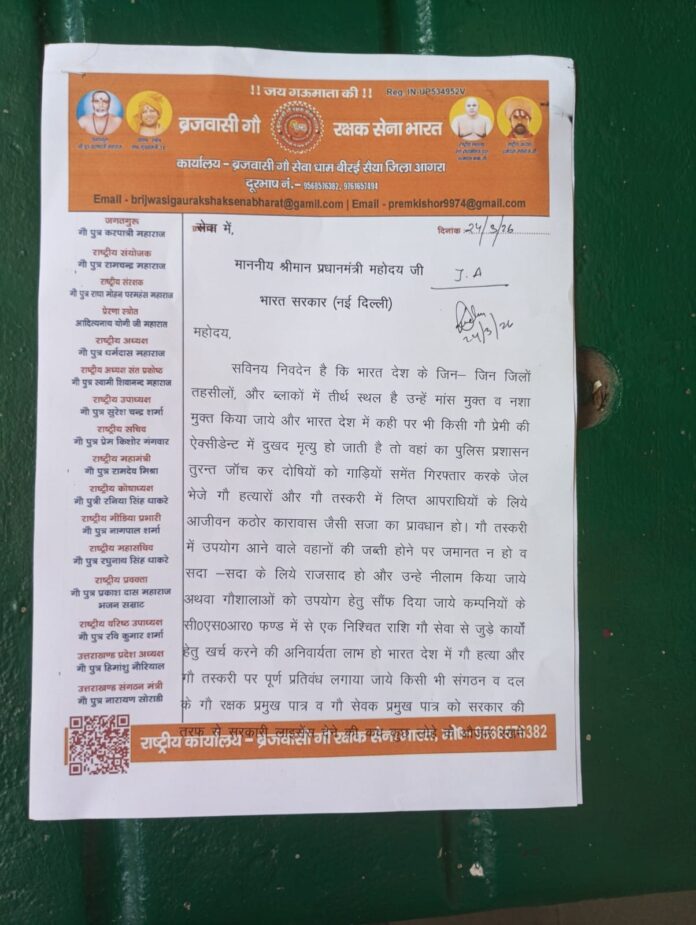 !! जय गऊमाता की !!
Reg. IN-UP534952V
ब्रजवासी गौ रक्षक सेना भारत
कार्यालय – ब्रजवासी गौ सेवा धाम बीरई सैया जिला आगरा
दूरभाष नं.- 9568576382, 9761657494
Email - brijwasigaurakshaksenabharat@gamil.com | Email - premkishor9974@gmail.com
जगतगुरू
गौ पुत्र करपात्री महाराज
राष्ट्रीय संयोजक
गौ पुत्र रामचन्द्र महाराज
राष्ट्रीय संरक्षक
गौ पुत्र राधा मोहन परमहंस महाराज
प्रेरणा स्त्रोत
आदित्यनाथ योगी जी महाराज
राष्ट्रीय अध्यक्ष
गौ पुत्र धर्मदास महाराज
राष्ट्रीय अध्यक्ष संत प्रकोष्ठ
गौ पुत्र स्वामी शिवानन्द महाराज
राष्ट्रीय उपाध्यक्ष
गौ पुत्र सुरेश चन्द्र शर्मा
राष्ट्रीय सचिव
गौ पुत्र प्रेम किशोर गंगवार
राष्ट्रीय महामंत्री
गौ पुत्र रामदेव मिश्रा
राष्ट्रीय कोषाध्यक्ष
गौ पुत्री रनिया सिंह धाकरे
राष्ट्रीय मीडिया प्रभारी
गौ पुत्र नागपाल शर्मा
राष्ट्रीय महासचिव
गौ पुत्र रघुनाथ सिंह धाकरे
राष्ट्रीय प्रवक्ता
गौ पुत्र प्रकाश दास महाराज
भजन सम्राट
राष्ट्रीय वरिष्ठ उपाध्यक्ष
गौ पुत्र रवि कुमार शर्मा
उत्तराखण्ड प्रदेश अध्यक्ष
गौ पुत्र हिमांशु नौरियाल
उत्तराखण्ड संगठन मंत्री
गौ पुत्र नारायण सोराडी
सेवा में,
दिनांक 24/3/26
माननीय श्रीमान प्रधानमंत्री महोदय जी
J.A
भारत सरकार (नई दिल्ली)
24/3/26
महोदय,
सविनय निवदेन है कि भारत देश के जिन– जिन जिलों
तहसीलों, और ब्लाकों में तीर्थ स्थल है उन्हें मांस मुक्त व नशा
मुक्त किया जाये और भारत देश में कही पर भी किसी गौ प्रेमी की
ऐक्सीडेन्ट में दुखद मृत्यु हो जाती है तो वहां का पुलिस प्रशासन
तुरन्त जॉंच कर दोषियों को गाड़ियों समेंत गिरफ्तार करके जेल
भेजे गौ हत्यारों और गौ तस्करी में लिप्त आपराधियों के लिये
आजीवन कठोर कारावास जैसी सजा का प्रावधान हो। गौ तस्करी
में उपयोग आने वाले वहानों की जब्ती होने पर जमानत न हो व
सदा –सदा के लिये राजसाद हो और उन्हे नीलाम किया जाये
अथवा गौशालाओं को उपयोग हेतु सौंफ दिया जाये कम्पनियों के
सी०एस०आर० फण्ड में से एक निश्चित राशि गौ सेवा से जुड़े कार्यो
हेतु खर्च करने की अनिवार्यता लाभ हो भारत देश में गौ हत्या और
गौ तस्करी पर पूर्ण प्रतिवंध लगाया जाये किसी भी संगठन व दल
के गौ रक्षक प्रमुख पात्र व गौ सेवक प्रमुख पात्र को सरकार की
तरफ से सरकारी लाइसेंस देने की
राष्ट्रीय कार्यालय – ब्रजवासी गौ रक्षक सेना भारत, मो०- 9568576382